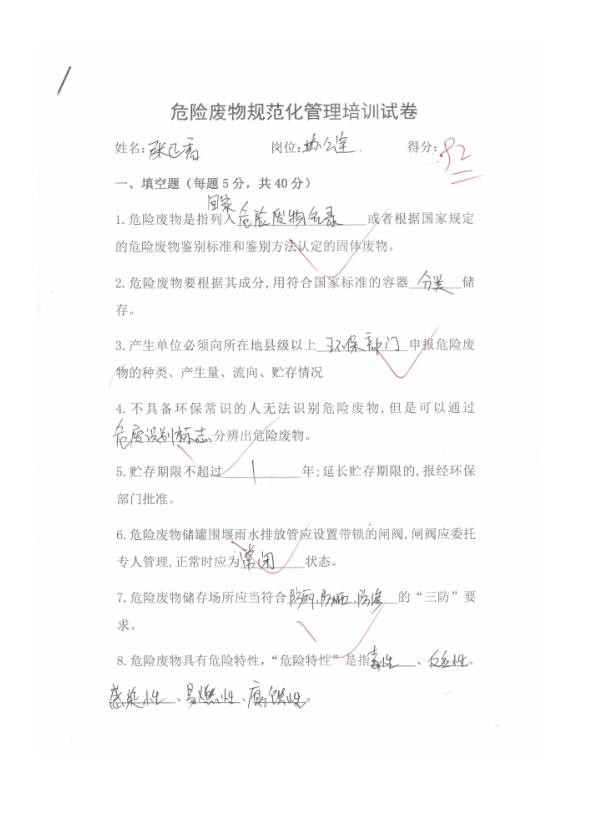 危险废物规范化管理培训试卷
姓名: 岗位:办公室. 得分:92
一、填空题（每题5分，共40分）
国家
1.危险废物是指列入危险废物名录 或者根据国家规定
的危险废物鉴别标准和鉴别方法认定的固体废物。
2.危险废物要根据其成分,用符合国家标准的容器 分类 储
存。
3.产生单位必须向所在地县级以上 环保部门 申报危险废
物的种类、产生量、流向、贮存情况
4.不具备环保常识的人无法识别危险废物,但是可以通过
危废识别标志 分辨出危险废物。
5.贮存期限不超过 1 年;延长贮存期限的,报经环保
部门批准。
6.危险废物储罐围堰雨水排放管应设置带锁的闸阀,闸阀应委托
专人管理,正常时应为 常闭 状态。
7.危险废物储存场所应当符合防雨、防晒、防渗 的“三防”要
求。
8.危险废物具有危险特性，“危险特性”是指毒性 、反应性、
感染性、易燃性、腐蚀性。